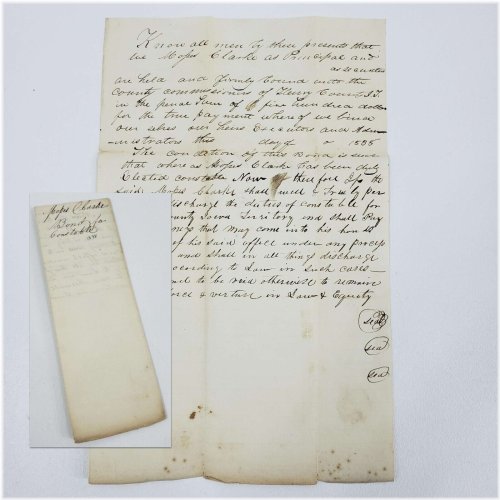 Know all men by these presents that
we Moses Clarke as Principal and
as securities
are held and firmly bound unto the
County commissioners of Henry County I.T.
in the penal sum of five hundred dollars
for the true payment where of we bind
our selves our heirs Executors and Adm
inistrators this day of 183
The condition of this bond is such
that where as Moses Clark has been duly
Elected constable Now if therefore the
said Moses Clarke shall well & Truly per
discharge the duties of constable for
County Iowa Territory and shall Pay
that may come into his hands
of his said office under any
and shall in all things discharge
according to Law in such cases
to be void otherwise to remain
& virtue in Law & Equity
seal
sea
sea
Moses Clarke
Bond for
Constable